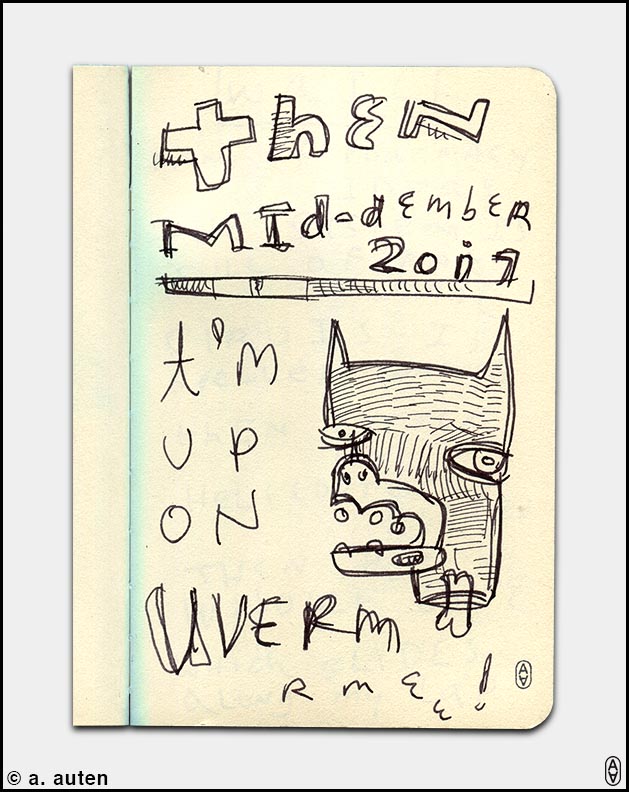 thEN
MId-dEmbER
2017
t'M
UP
ON
UVERM
RMEE!
© a. auten